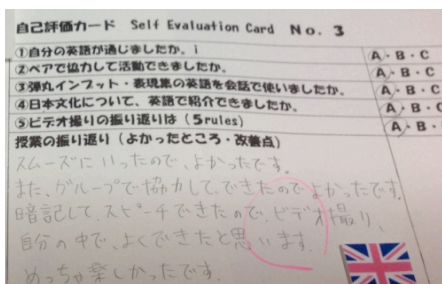 自己評価カード Self Evaluation Card No. 3
①自分の英語が通じましたか。i A・B・C
②ペアで協力して活動できましたか。 A・B・C
③弾丸インプット・表現集の英語を会話で使いましたか。 A・B・C
④日本文化について、英語で紹介できましたか。 A・B・C
⑤ビデオ撮りの振り返りは(5rules) A・B・
授業の振り返り(よかったところ・改善点)
スムーズにいったので、よかったです。
また、グループで協力して、できたのでよかったです。
暗記して、スピーチできたので、ビデオ撮り、
自分の中で、よくできたと思います。
めっちゃ楽しかったです。